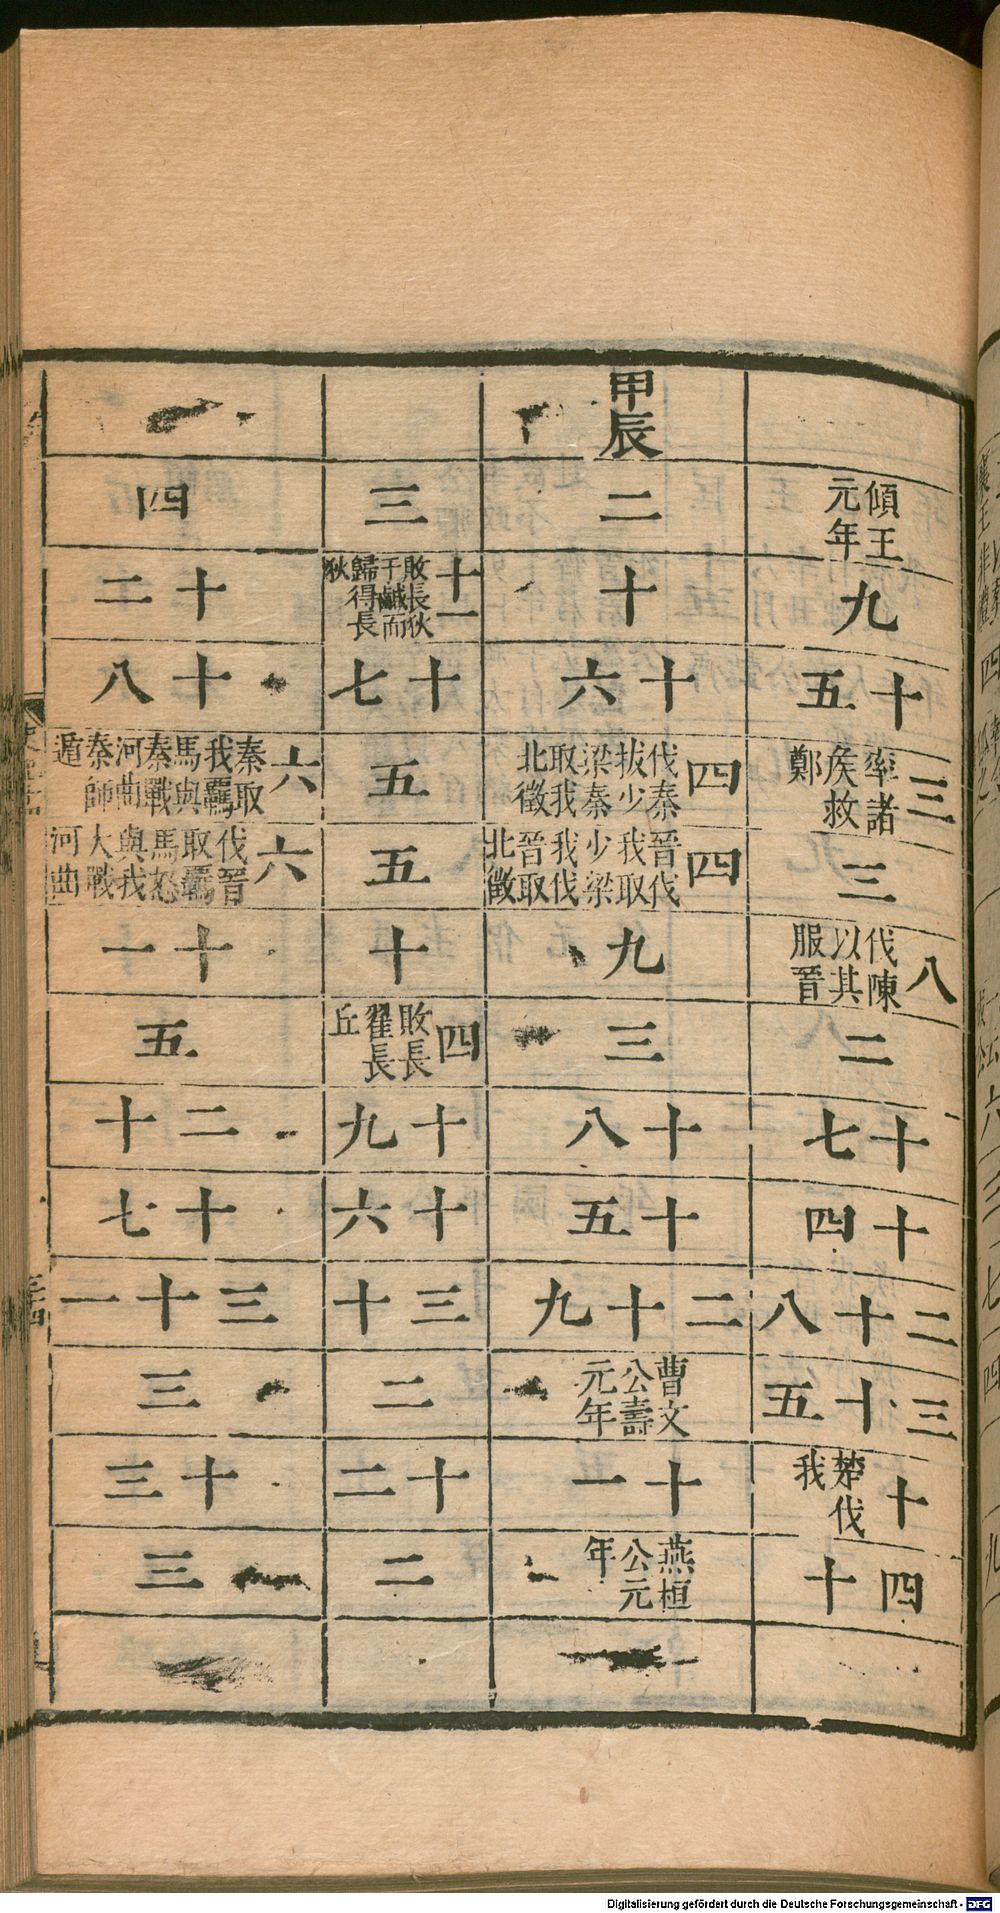 傾王元年
九
十五
三 率諸矦救鄭
三
八 伐陳以其服晉
二
十七
十四
二十八
三十五
十 楚伐我
四十
甲辰
二
十
十六
四 伐秦拔少梁秦取我北徵
四 晉伐我取少梁我伐晉取北徵
九
三
十八
十五
二十九
曹文公壽元年
十一
燕桓公元年
三
十一 敗長狄于鹹而歸得長狄
十七
五
五
十
四 敗長翟長丘
十九
十六
三十
二
十二
二
四
十二
十八
六 秦取我羈馬與秦戰河曲秦師遁
六 伐晉取羈馬怒與我大戰河曲
十一
五
二十
十七
三十一
三
十三
三
Digitalisierung gefördert durch die Deutsche Forschungsgemeinschaft - DFG